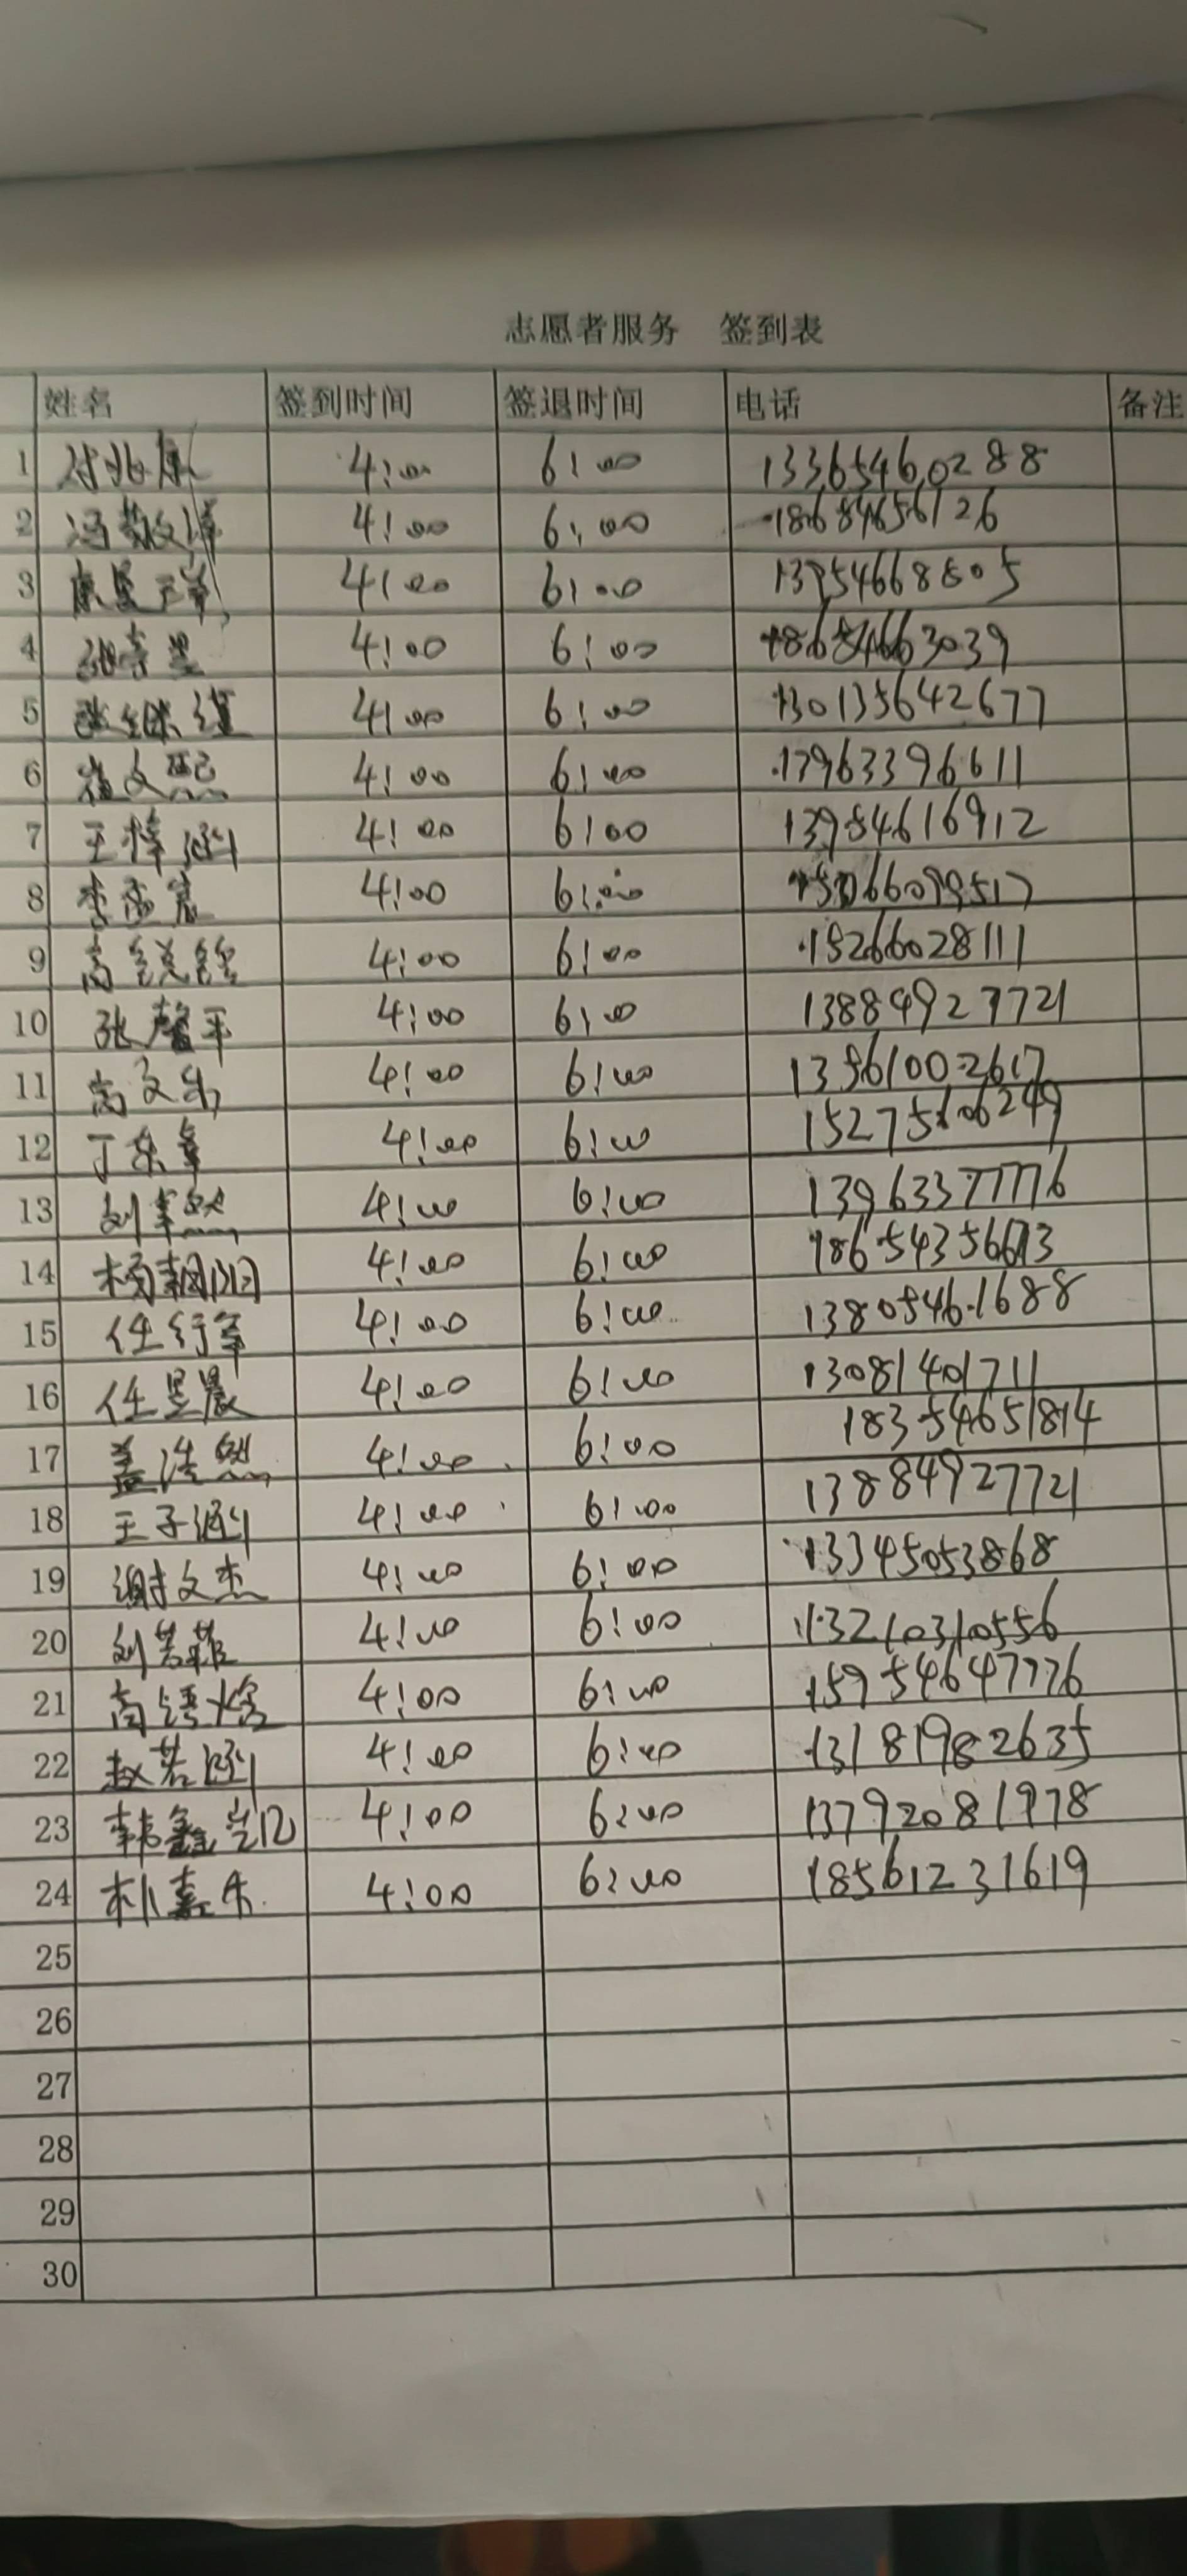 志愿者服务 签到表
姓名 签到时间 签退时间 电话 备注
1 4:00 6:00 13365460288
2 冯敬文 4:00 6:00 18684656126
3 康 4:00 6:00 13954668805
4 张 4:00 6:00 18654663039
5 张继 4:00 6:00 130135642677
6 崔文熙 4:00 6:00 13963396611
7 王梓涵 4:00 6:00 13954616912
8 李 4:00 6:00
9 高 4:00 6:00 15266028111
10 张馨平 4:00 6:00 13884927721
11 高文 4:00 6:00 13561002617
12 丁东 4:00 6:00
13 刘 4:00 6:00 13963377776
14 杨 4:00 6:00 18654356613
15 任行 4:00 6:00 13805461688
16 任昱晨 4:00 6:00 13081401711
17 盖浩然 4:00 6:00 18354651814
18 王子涵 4:00 6:00 13884927721
19 谢文杰 4:00 6:00 13345053868
20 刘若菲 4:00 6:00 13210310556
21 高 4:00 6:00 15954647776
22 赵若涵 4:00 6:00 13181982635
23 韩鑫 4:00 6:00 13792081978
24 朴嘉乐 4:00 6:00 18561231619
25
26
27
28
29
30